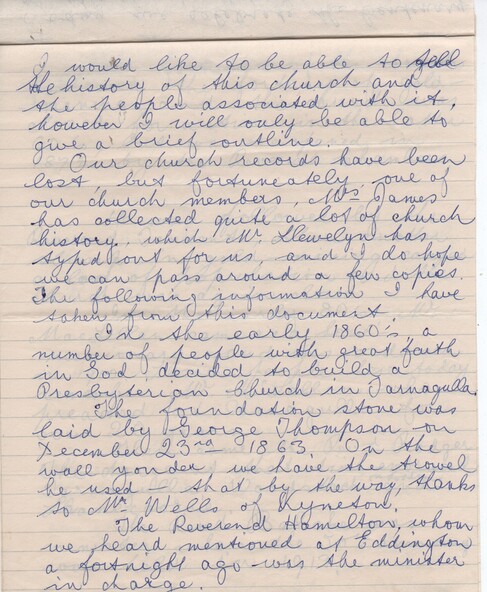 I would like to be able to tell
the history of this church and
the people associated with it,
however I will only be able to
give a brief outline.
Our church records have been
lost, but fortuneately, one of
our church members, Mrs James
has collected quite a lot of church
history, which Mr. Llewelyn has
typed out for us, and I do hope
we can pass around a few copies.
The following information I have
taken from this document.
In the early 1860's, a
number of people with great faith
in God, decided to build a
Presbyterian Church in Tarnagulla.
The foundation stone was
laid by George Thompson on
December 23rd 1863. On the
wall yonder we have the trowel
he used, that by the way, thanks
to Mr. Wells of Kyneton.
The Reverend Hamilton, whom
we heard mentioned at Eddington
a fortnight ago was the minister
in charge.